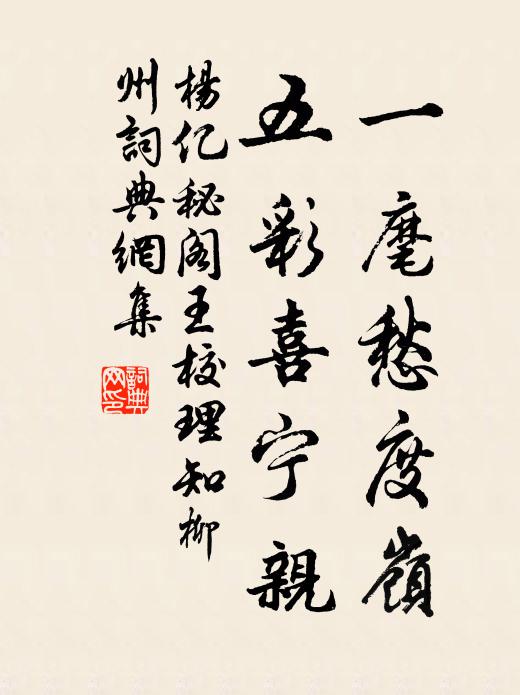 一麾愁度嶺
五彩喜宁親
楊亿秘阁王校理知柳
州詞典網集
詞典网印